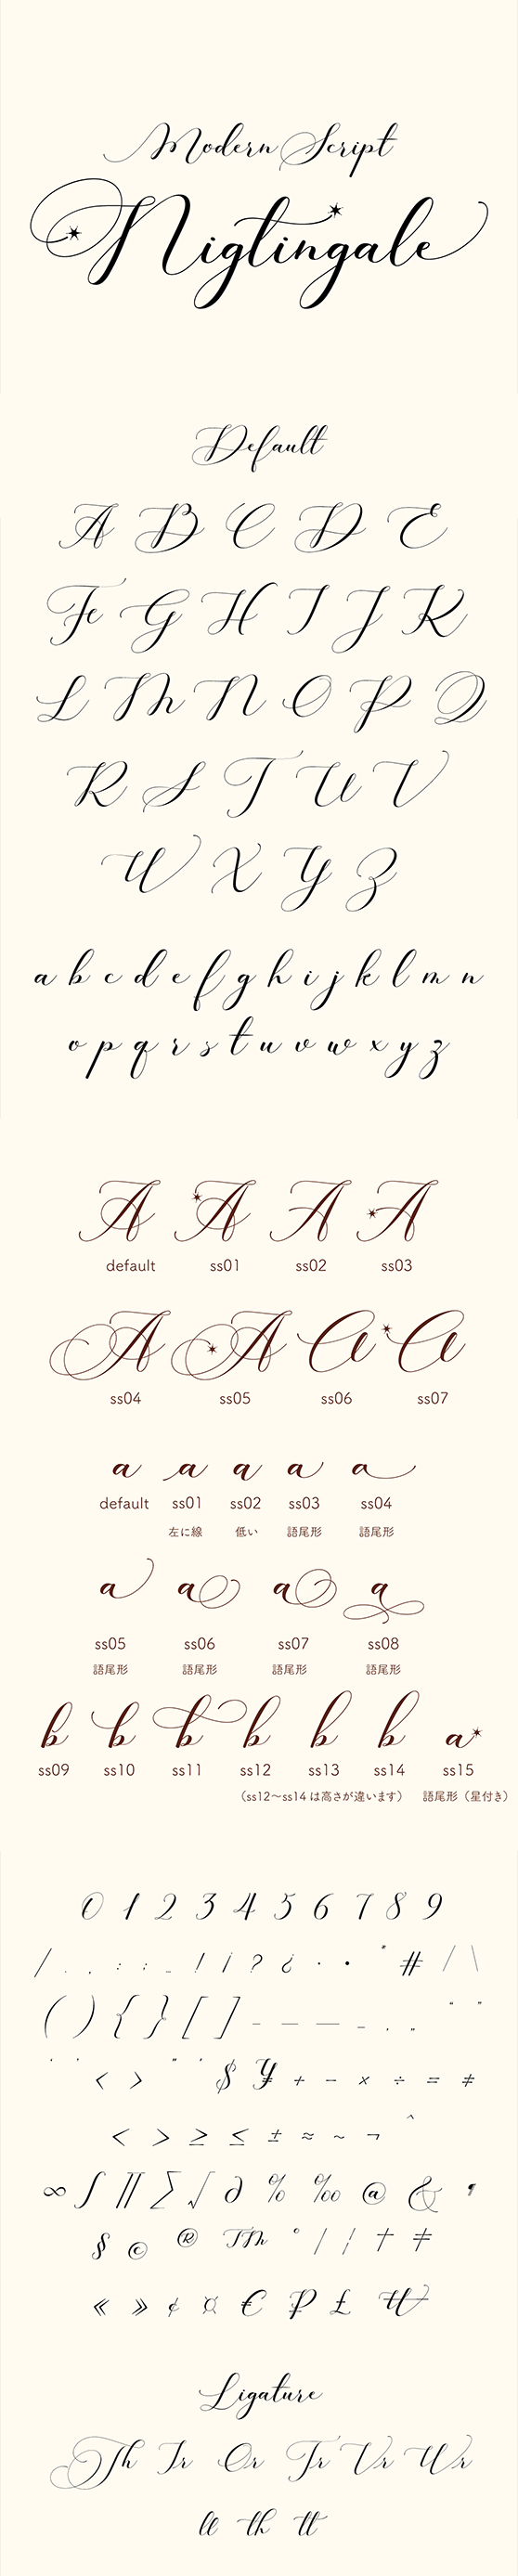 Modern Script
Nigtingale
Default
A B C D E
Fe G H I J K
L M N O P Q
R S T U V
W X Y Z
a b c d e f g h i j k l m n
o p q r s t u v w x y z
A A A A
default ss01 ss02 ss03
A A A A
ss04 ss05 ss06 ss07
a a a a a
default ss01 ss02 ss03 ss04
左に線 低い 語尾形 語尾形
a a a a
ss05 ss06 ss07 ss08
語尾形 語尾形 語尾形 語尾形
b b b b b b a
ss09 ss10 ss11 ss12 ss13 ss14 ss15
（ss12～ss14 は高さが違います） 語尾形（星付き）
0 1 2 3 4 5 6 7 8 9
/ . , : ; … ! ¡ ? ¿ · • * # / \
( ) { } [ ] - – — _ ‚ „ “ ”
‘ ’ < > " ' $ ¥ + − × ÷ = ≠
< > ≥ ≤ ± ≈ ~ ¬ ^
∞ ∫ ∏ ∑ √ ∂ % ‰ @ & ¶
§ © ® TM ° | ¦ † ‡
« » ¢ ¤ € ₽ £ ₩
Ligature
Th Ir Or Tr Vr Wr
ll th tt